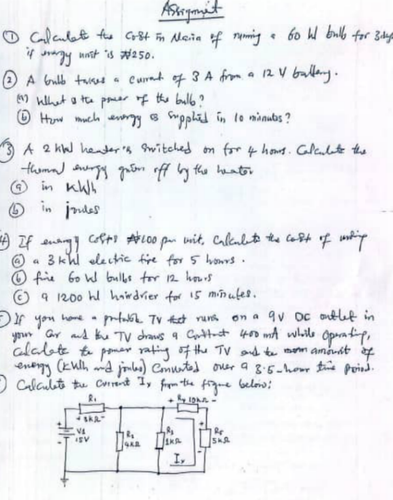 Assignment
① Calculate the cost in Naira of running a 60 W bulb for 3 days
if energy unit is ₦250.
② A bulb takes a current of 3 A from a 12 V battery.
(a) What is the power of the bulb?
ⓑ How much energy is supplied in 10 minutes?
③ A 2 kW heater is switched on for 4 hours. Calculate the
thermal energy given off by the heater
ⓐ in kWh
ⓑ in joules
④ If energy costs ₦100 per unit, Calculate the cost of using
ⓐ a 3 kW electric fire for 5 hours.
ⓑ five 60 W bulbs for 12 hours
ⓒ a 1200 W hairdrier for 15 minutes.
If you have a portable TV that runs on a 9V DC outlet in
your Car and the TV draws a Current 400 mA while Operating,
calculate the power rating of the TV and the amount of
energy (kWh and joules) Consumed over a 3.5-hour time period.
Calculate the Current Ix from the figure below:
R1
+ R4 10KΩ -
V1
15V
R2
4KΩ
R3
R5
5KΩ
Ix